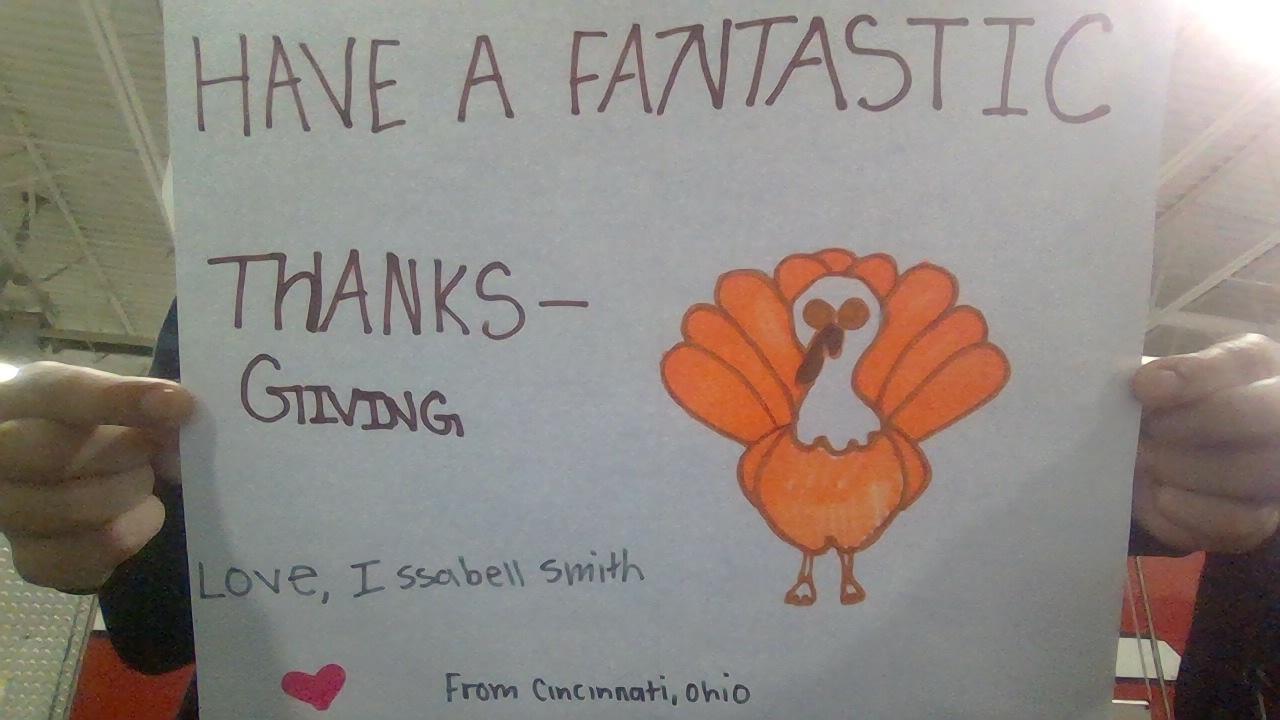 HAVE A FANTASTIC
THANKS-
GIVING
Love, Issabell smith
From Cincinnati, ohio